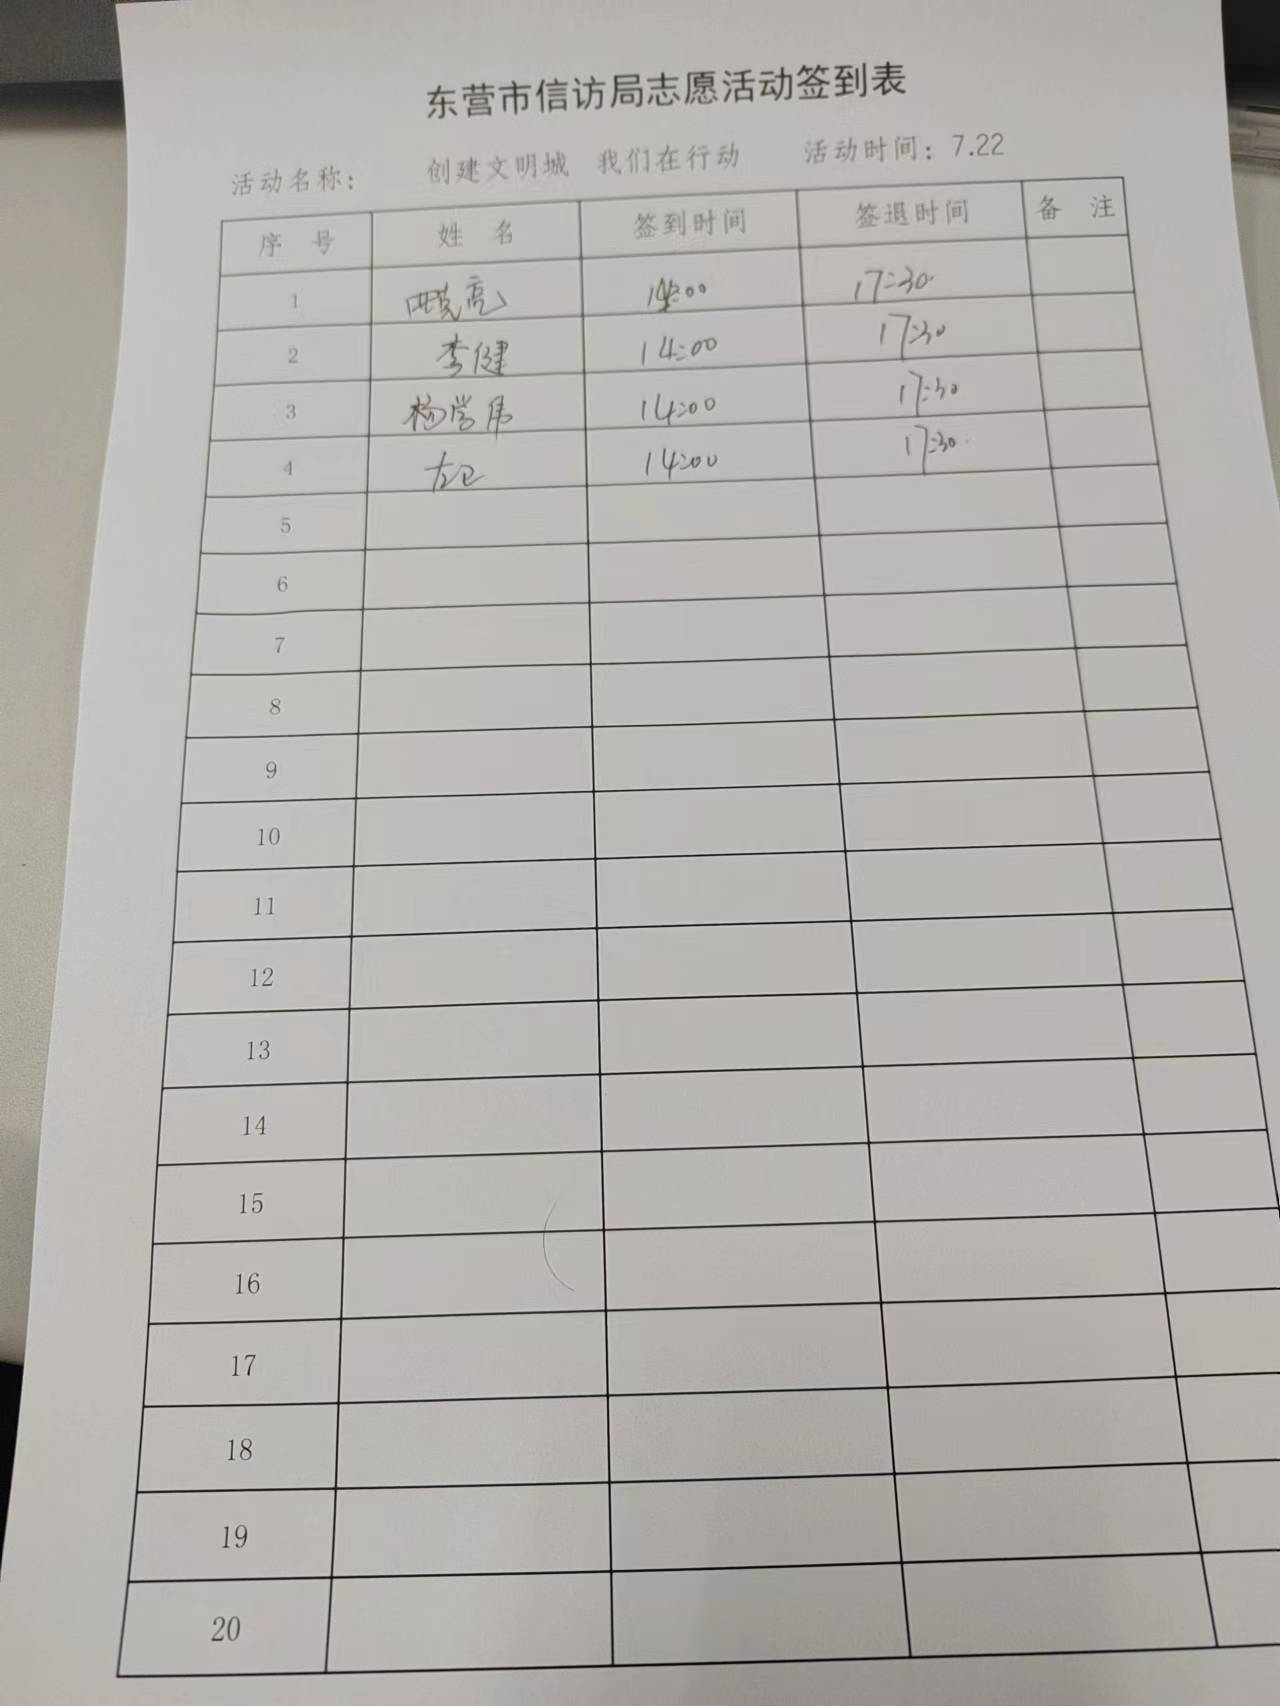 东营市信访局志愿活动签到表
活动名称： 创建文明城 我们在行动 活动时间：7.22
序 号 姓 名 签到时间 签退时间 备 注
1 亮 14:00 17:30
2 李健 14:00 17:30
3 杨学伟 14:00 17:30
4 左卫 14:00 17:30
5
6
7
8
9
10
11
12
13
14
15
16
17
18
19
20